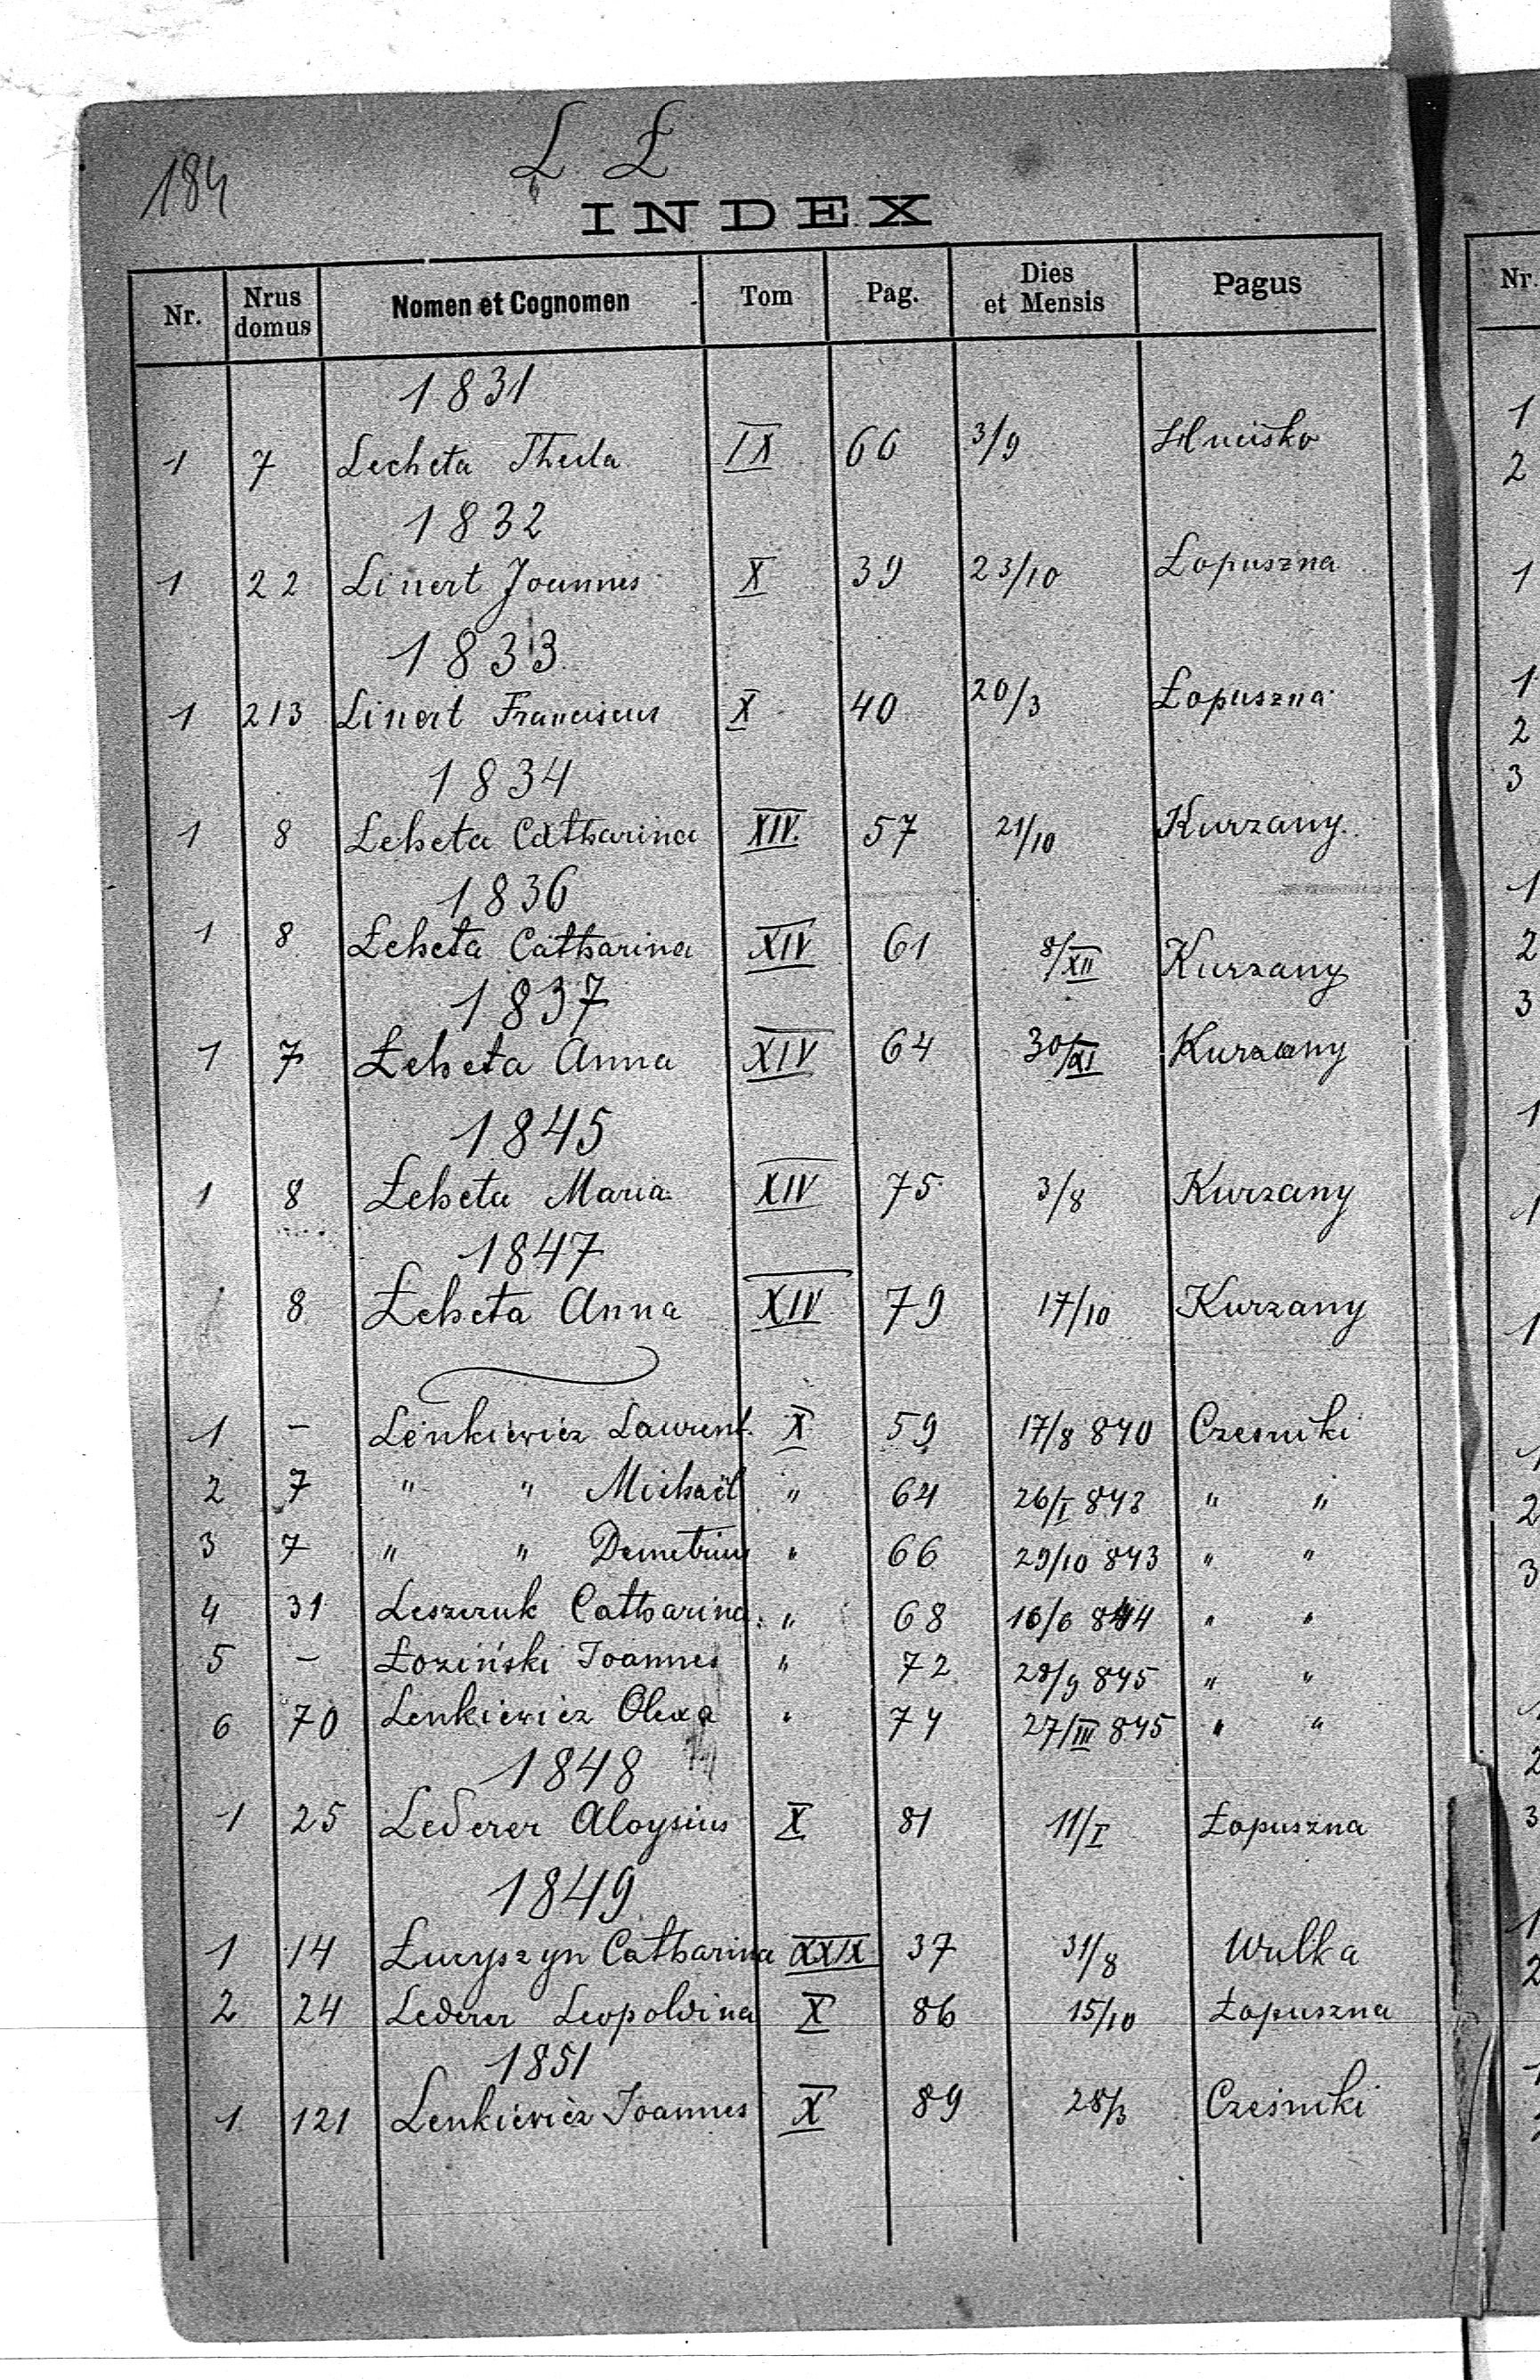 184
L Ł
INDEX
Nr. Nrus domus Nomen et Cognomen Tom Pag. Dies et Mensis Pagus
1831
1 7 Lecheta Thecla IX 66 3/9 Hucisko
1832
1 22 Linert Joannes X 39 23/10 Łopuszna
1833
1 213 Linert Franciscus X 40 20/3 Łopuszna
1834
1 8 Łeheta Catharina XIV. 57 21/10 Kurzany
1836
1 8 Łeheta Catharina XIV 61 8/XII Kurzany
1837
1 7 Łeheta Anna XIV 64 30/XI Kurzany
1845
1 8 Łeheta Maria XIV 75 3/8 Kurzany
1847
8 Łeheta Anna XIV 79 17/10 Kurzany
1 – Lenkiewicz Laurent. X 59 17/8 840 Czesniki
2 7 " " Michaël " 64 26/I 843 " "
3 7 " " Demetrius " 66 29/10 843 " "
4 31 Leszczuk Catharina. " 68 16/6 844 " "
5 – Łoziński Joannes " 72 28/9 845 " "
6 70 Lenkiewicz Olexa " 74 27/III 845 " "
1848
1 25 Lederer Aloysius X 81 11/I Łopuszna
1849
1 14 Łucyszyn Catharina XXIX 37 31/8 Wulka
2 24 Lederer Leopoldina X 86 15/10 Łopuszna
1851
1 121 Lenkiewicz Joannes X 89 28/3 Cześniki
Nr.
1
2
1
1
2
3
1
2
3
1
1
1
1
2
3
1
2
3
1
2